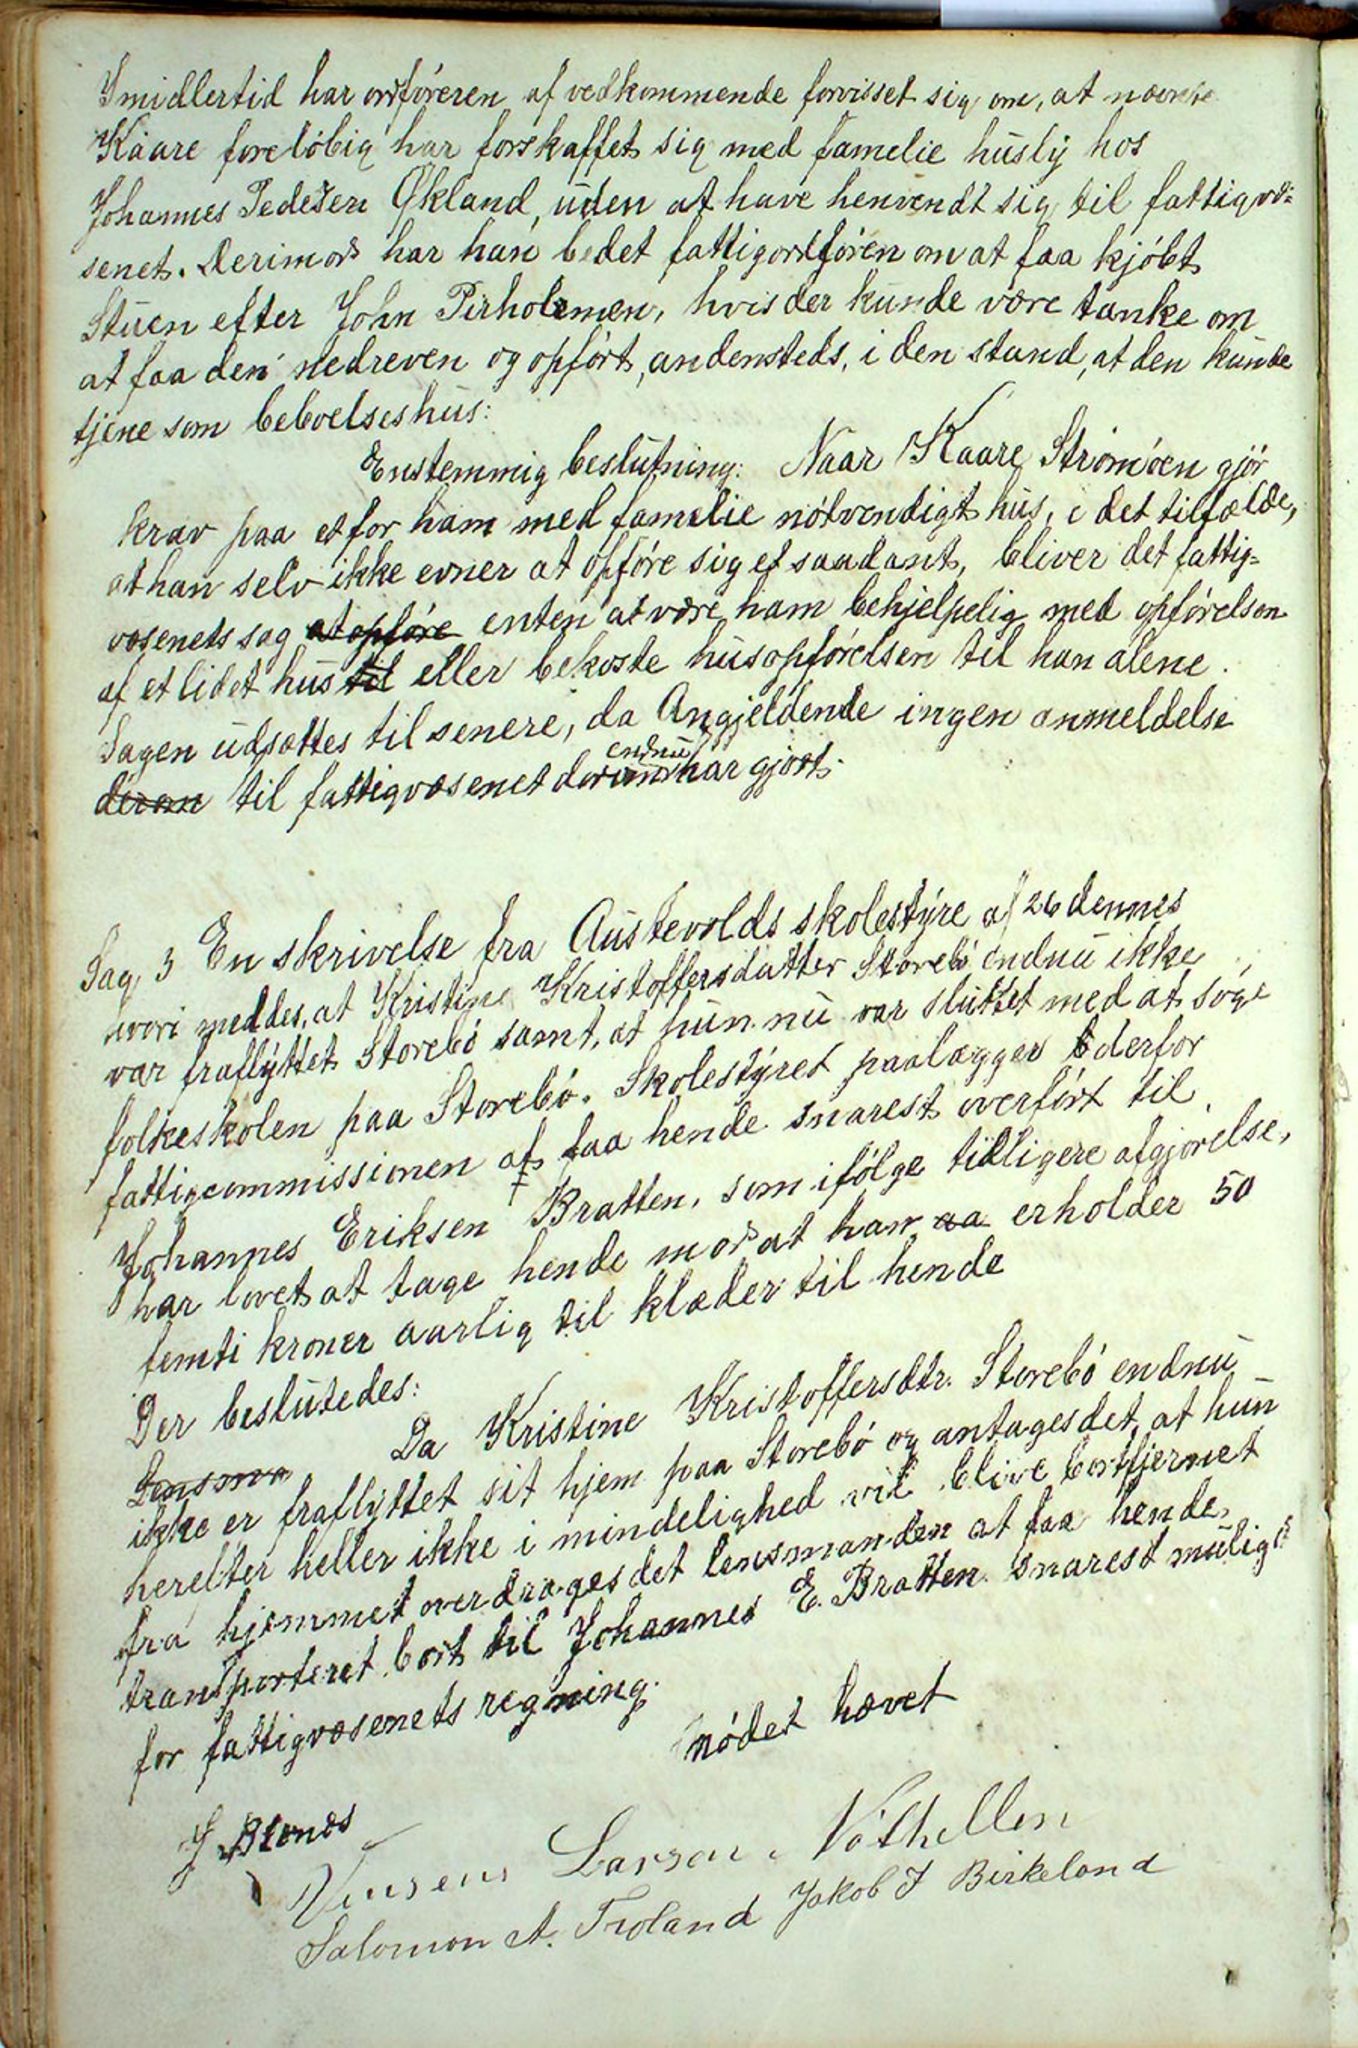 Imidlertid har ordføreren af vedkommende forvisset sig om, at nævnte
Kaare foreløbig har forskaffet sig med famelie husly hos
Johannes Pedersen Økland, uden at have henvendt sig til fattigvæ=
senet. Derimod har han bedet fattigordføren om at faa kjøbt
Stuen efter John Pirholmen, hvis der kunde være tanke om
at faa den nedreven og opført, andensteds, i den stand, at den kunde
tjene som bebvelseshus:
Enstemmig beslutning: Naar Kaare Strømøen gjør
krav paa et for ham med famelie nøtvendigt hus, i det tilfælde,
at han selv ikke evner at opføre sig et saadant, bliver det fattig=
væsenets sag at opføre enten at være ham behjelpelig med opførelsen
af et lidet hus til eller bekoste husopførelsen til han alene.
Sagen udsættes til senere, da Angjeldende ingen anmeldelse
derom til fattigvæsenet derom endnu har gjort.
Sag 3 En skrivelse fra Austevolds skolestyre af 26 dennes
hvori meddes, at Kristine Kristoffersdatter Storebø endnu ikke
var fraflyttet Storebø samt, at hun nu var sluttet med at søge
folkeskolen paa Storebø. Skolestyret paalægger derfor
fattigcommissionen at faa hende snarest overført til
Johannes Eriksen Bratten, som ifølge tidligere afgjørelse,
har lovet at tage hende mod at han aa erholder 50
femti kroner aarlig til klæder til hende
Der beslutedes:
Lensma Da Kristine Kristoffersdtr. Storebø endnu
ikke er fraflyttet sit hjem paa Storebø og antages det, at hun
herefter heller ikke i mindelighed vil blive bortfjernet
fra hjemmet overdrages det lensmanden at faa hende
transporteret bort til Johannes E. Bratten snarest muligt
for fattigvæsenets regning.
Mødet hævet
J Blænes
Vinsens Larsen Møthellen
Salomon A. Troland Jakob J Birkeland